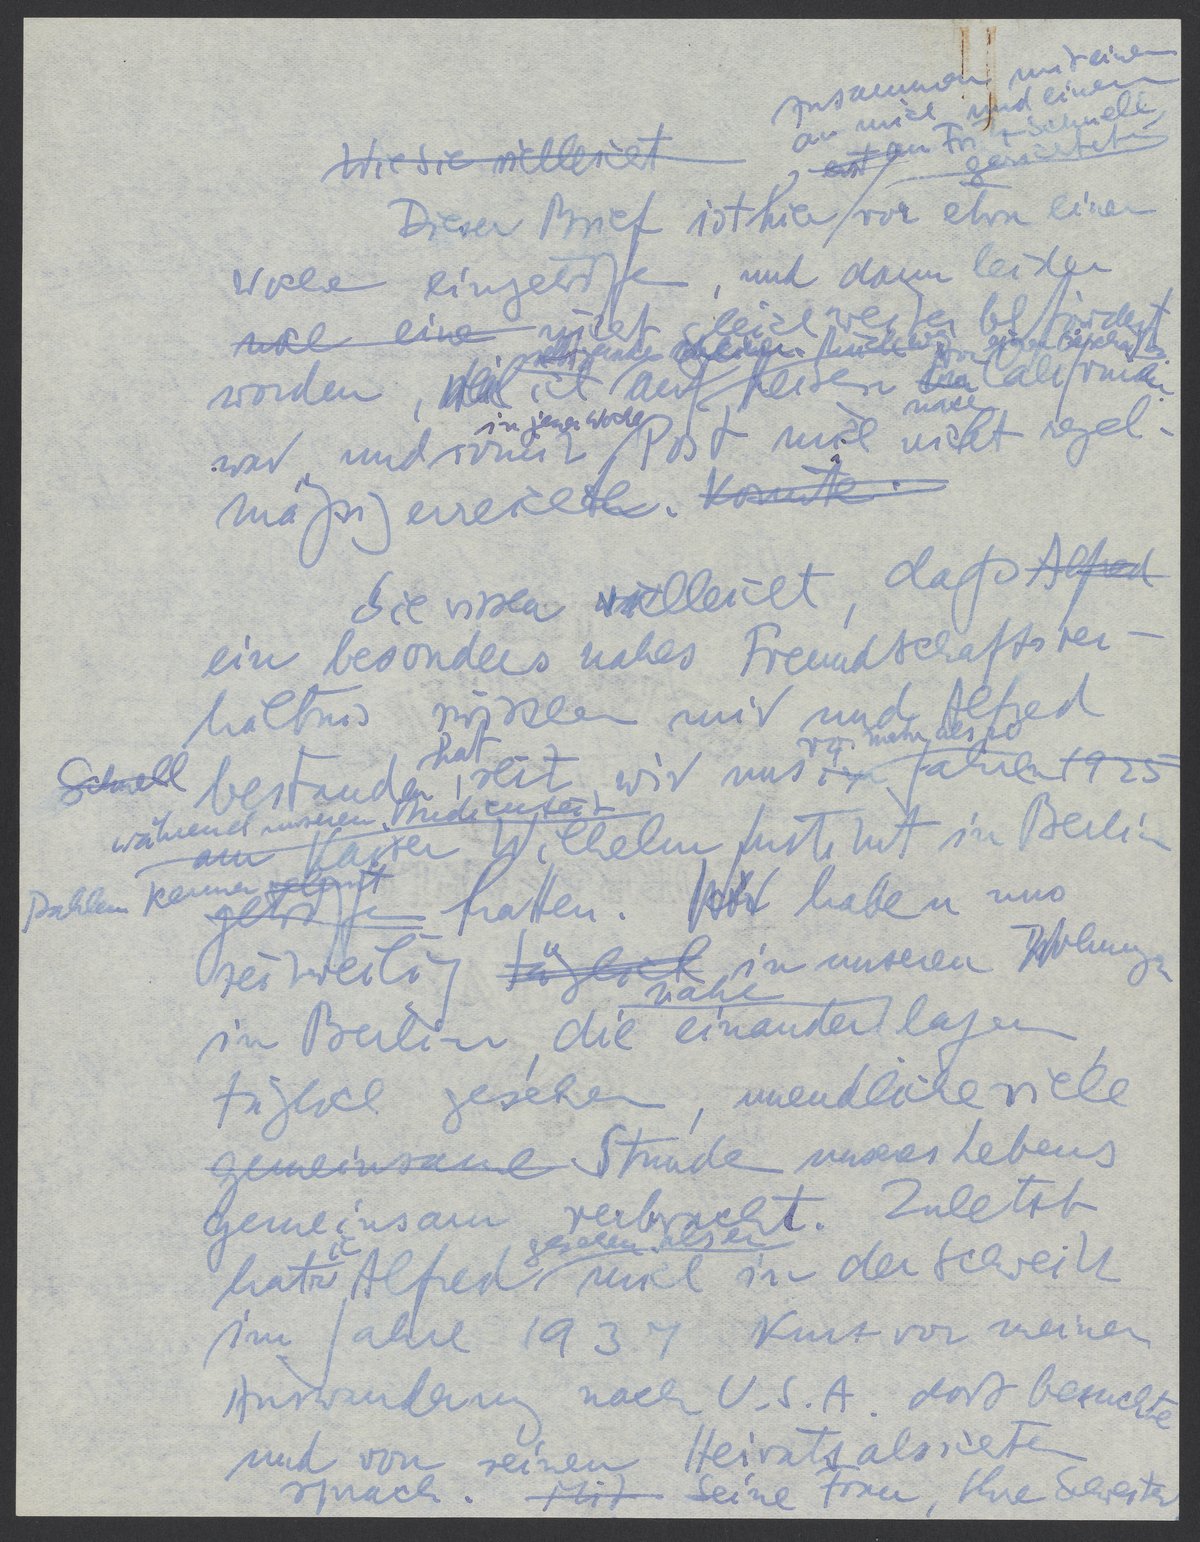 zusammen mit einem
an mich und einem
an Frl. Schnell
gerichtet
Wie Sie vielleicht
Dieser Brief ist hier vor etwa einer
Woche eingetroffen, und dann leider
noch eine nicht gleich weiter befördert
worden, weil ich auf Reisen in Californien
in jener Woche nach
war, und somit Post mich nicht regel-
mäßig erreichte. konnte.
Sie wissen vielleicht, dass Alfred
ein besonders nahes Freundschaftsver-
hältnis zwischen mir und Alfred
hat vor mehr als 10
Schnell bestanden, seit wir uns im Jahre 1925
während unserer Studienzeit
am Kaiser Wilhelm Institut in Berlin
Dahlem kennen gelernt
getroffen hatten. Wir haben uns
zeitweilig täglich in unseren Wohnungen
nahe
in Berlin, die einander lagen,
täglich gesehen, unendliche viele
gemeinsame Stunde unseres Lebens
gemeinsam verbracht. Zuletzt
ich gesehen, als er
hatte Alfred mich in der Schweiz
im Jahre 1937 kurz vor meiner
Auswanderung nach U.S.A. dort besuchte
und von seinen Heiratsabsichten
sprach. Mit Seine Frau, Ihre Schwester